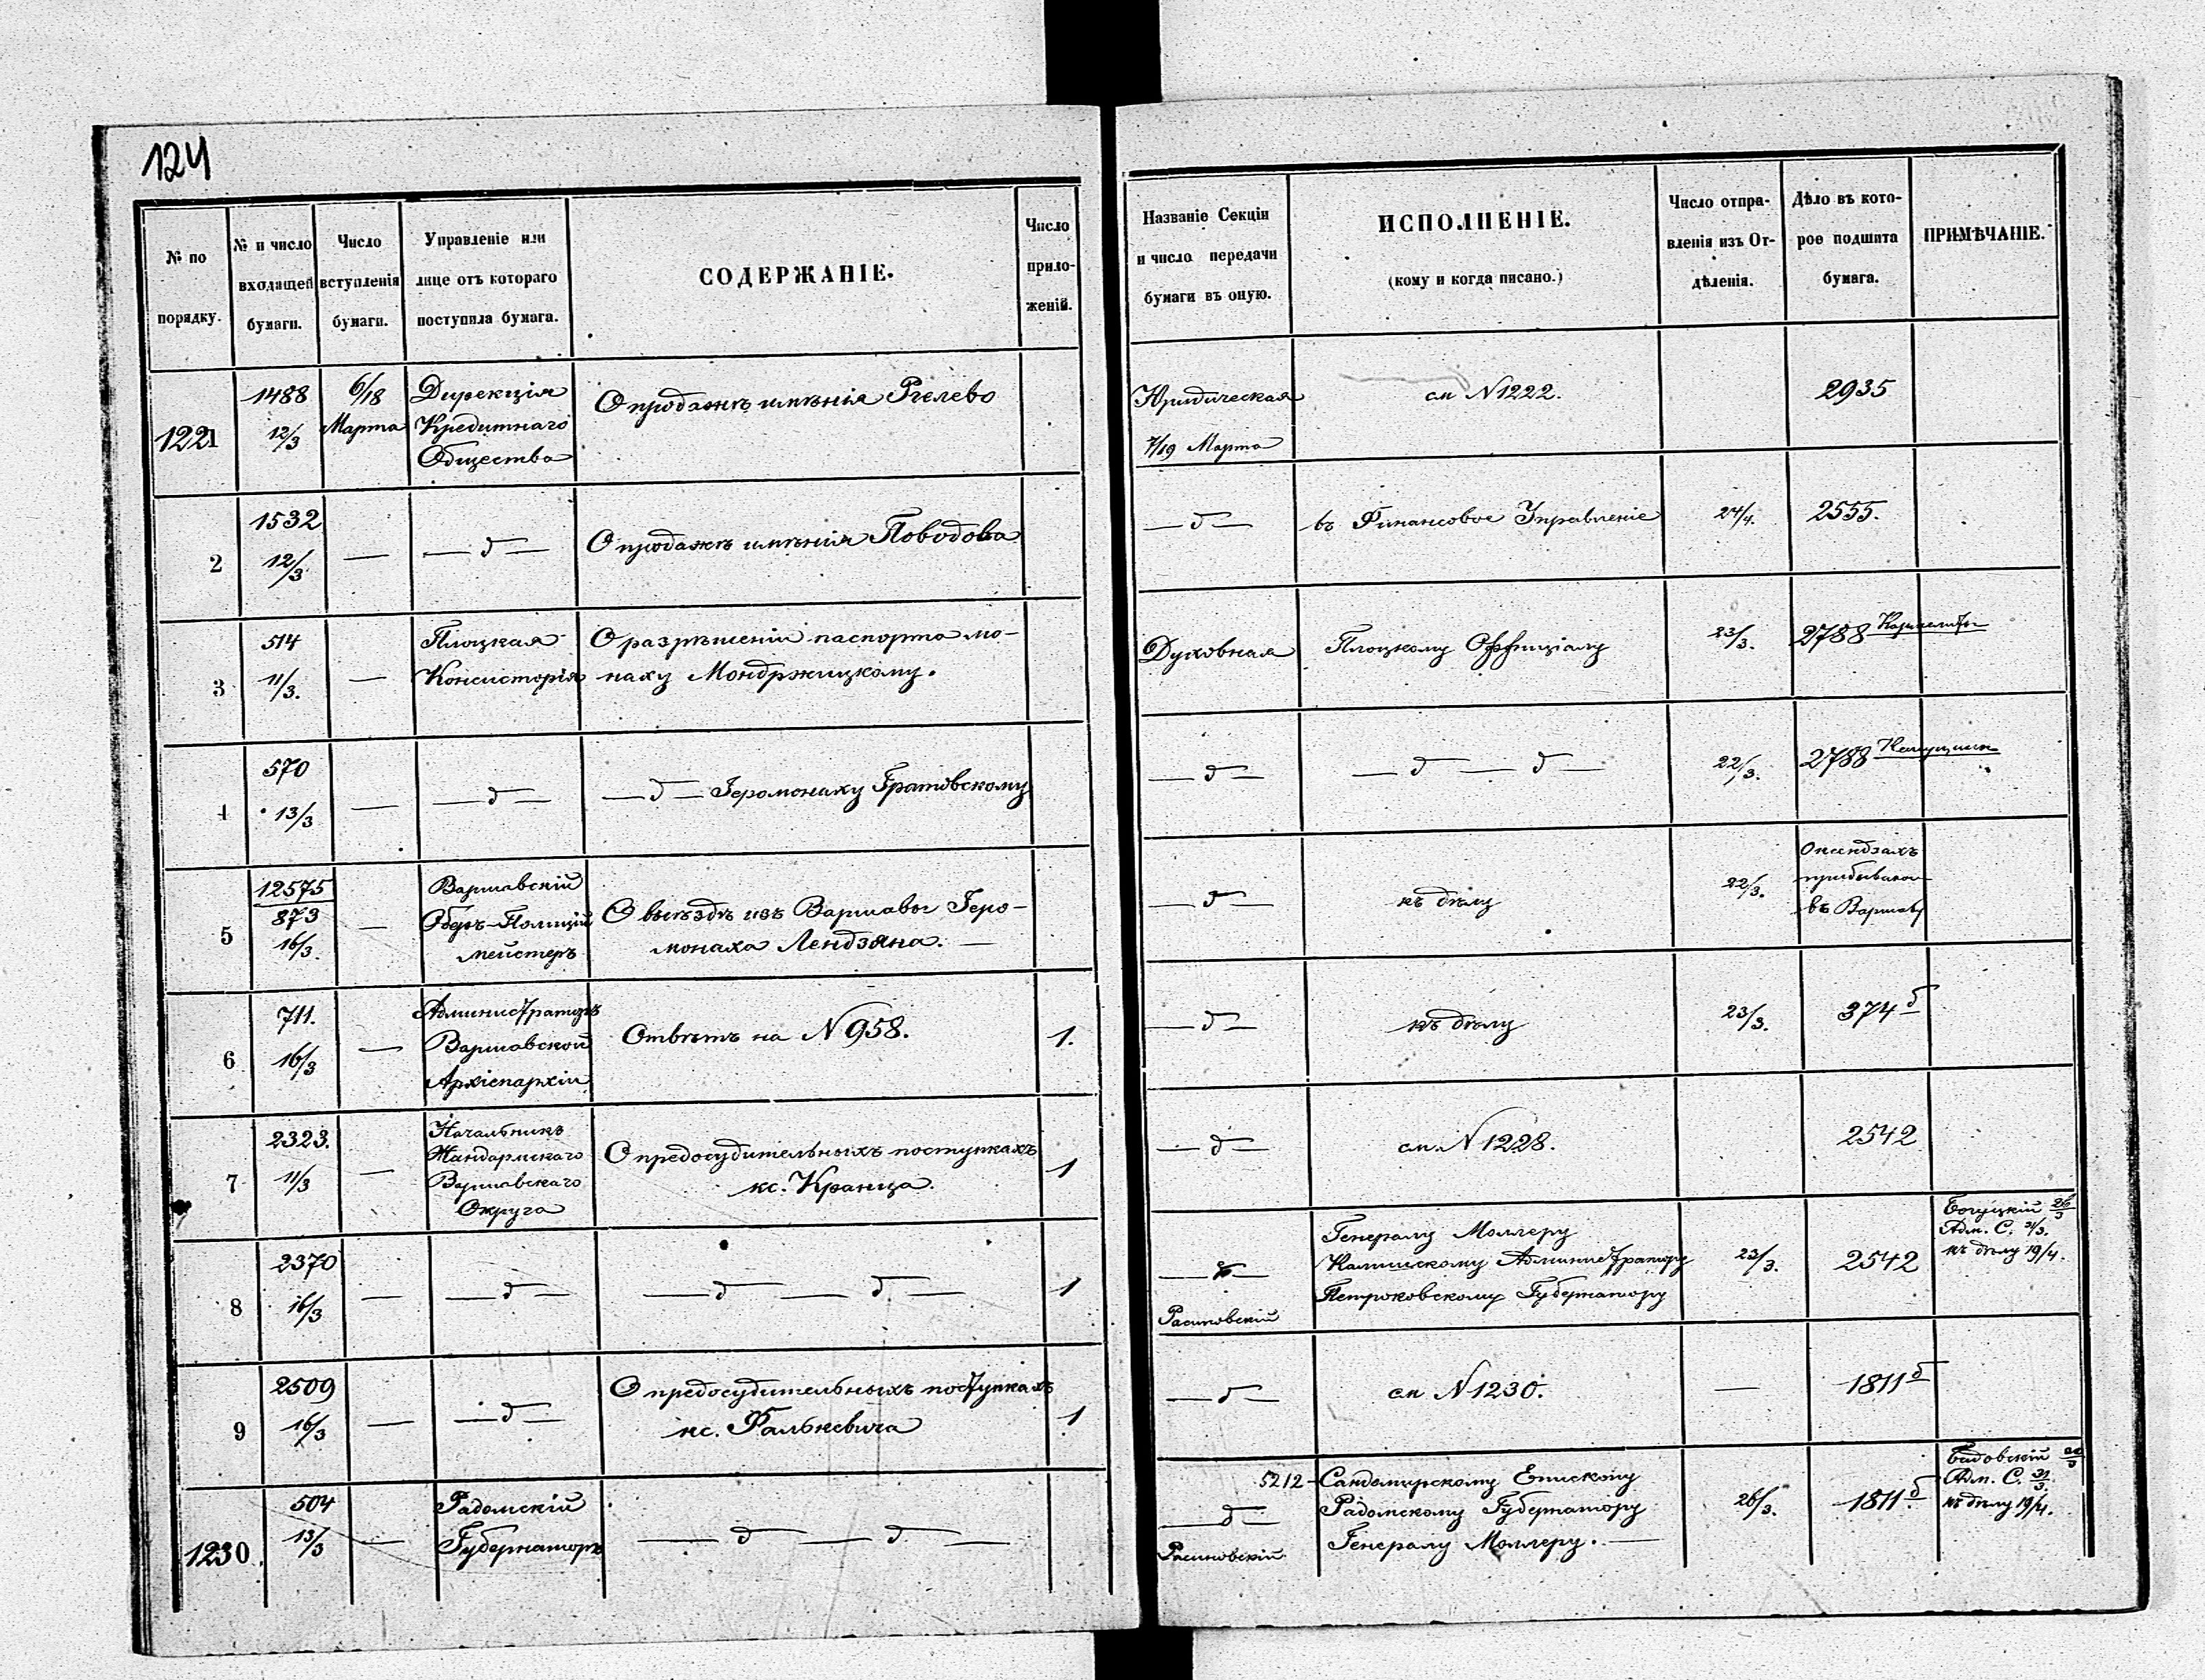 124
№ по порядку.
№ и число входящей бумаги.
Число вступленія бумаги.
Управленіе или лице отъ котораго поступила бумага.
СОДЕРЖАНІЕ.
Число приложеній.
Названіе Секціи и число передачи бумаги въ оную.
ИСПОЛНЕНІЕ.
(кому и когда писано.)
Число отправленія изъ Отдѣленія.
Дѣло въ которое подшита бумага.
ПРИМѢЧАНІЕ.
1221
1488
12/3
6/18
Марта
Дирекція
Кредитнаго
Общества
О продажѣ имѣнія Рчелево
Юридическая
7/19 Марта
см N 1222.
2935
2
1532
12/3
—
— д —
О продажѣ имѣнія Поводова
— д —
въ Финансовое Управленіе
24/4.
2555.
3
514
11/3.
—
Плоцкая
Консисторія
О разрѣшеніи паспорта мо-
наху Мондржицкому.
Духовная
Плоцкому Оффиціалу
23/3.
2788
4
570
13/3
—
— д —
— д — Іеромонаху Гратовскому
— д —
— д — д —
22/3.
2788
5
12575
873
16/3.
—
Варшавскій
Оберъ-Полицій
мейстеръ
О выѣздѣ изъ Варшавы Іеро-
монаха Лендзяна. —
— д —
къ дѣлу
22/3.
О ксендзахъ
въ Варшаву
6
711.
16/3
—
Администраторъ
Варшавской
Архіепархіи
Отвѣтъ на N 958.
1.
— д —
къ дѣлу
23/3.
374 б
7
2323.
11/3
—
Начальникъ
Жандармскаго
Варшавскаго
Округа
О предосудительныхъ поступкахъ
кс. Кранца.
1
— д —
см. N 1228.
2542
8
2370
16/3
—
— д —
— д — д —
1
— д —
Расиновскій
Генералу Моллеру
Калишскому Администратору
Петроковскому Губернатору
23/3.
2542
Богуцкій 26/3
Адм. С. 31/3.
къ дѣлу 19/4.
9
2509
16/3
—
— д —
О предосудительныхъ поступкахъ
кс. Фалькевича
1
— д —
см N 1230.
—
1811 б
1230.
504
13/3
—
Радомскій
Губернаторъ
— д — д —
— д —
Расиновскій
5212 - Сандомирскому Епископу
Радомскому Губернатору
Генералу Моллеру. —
26/3.
1811 б.
Адм. С. 31/3.
къ дѣлу 19/4.